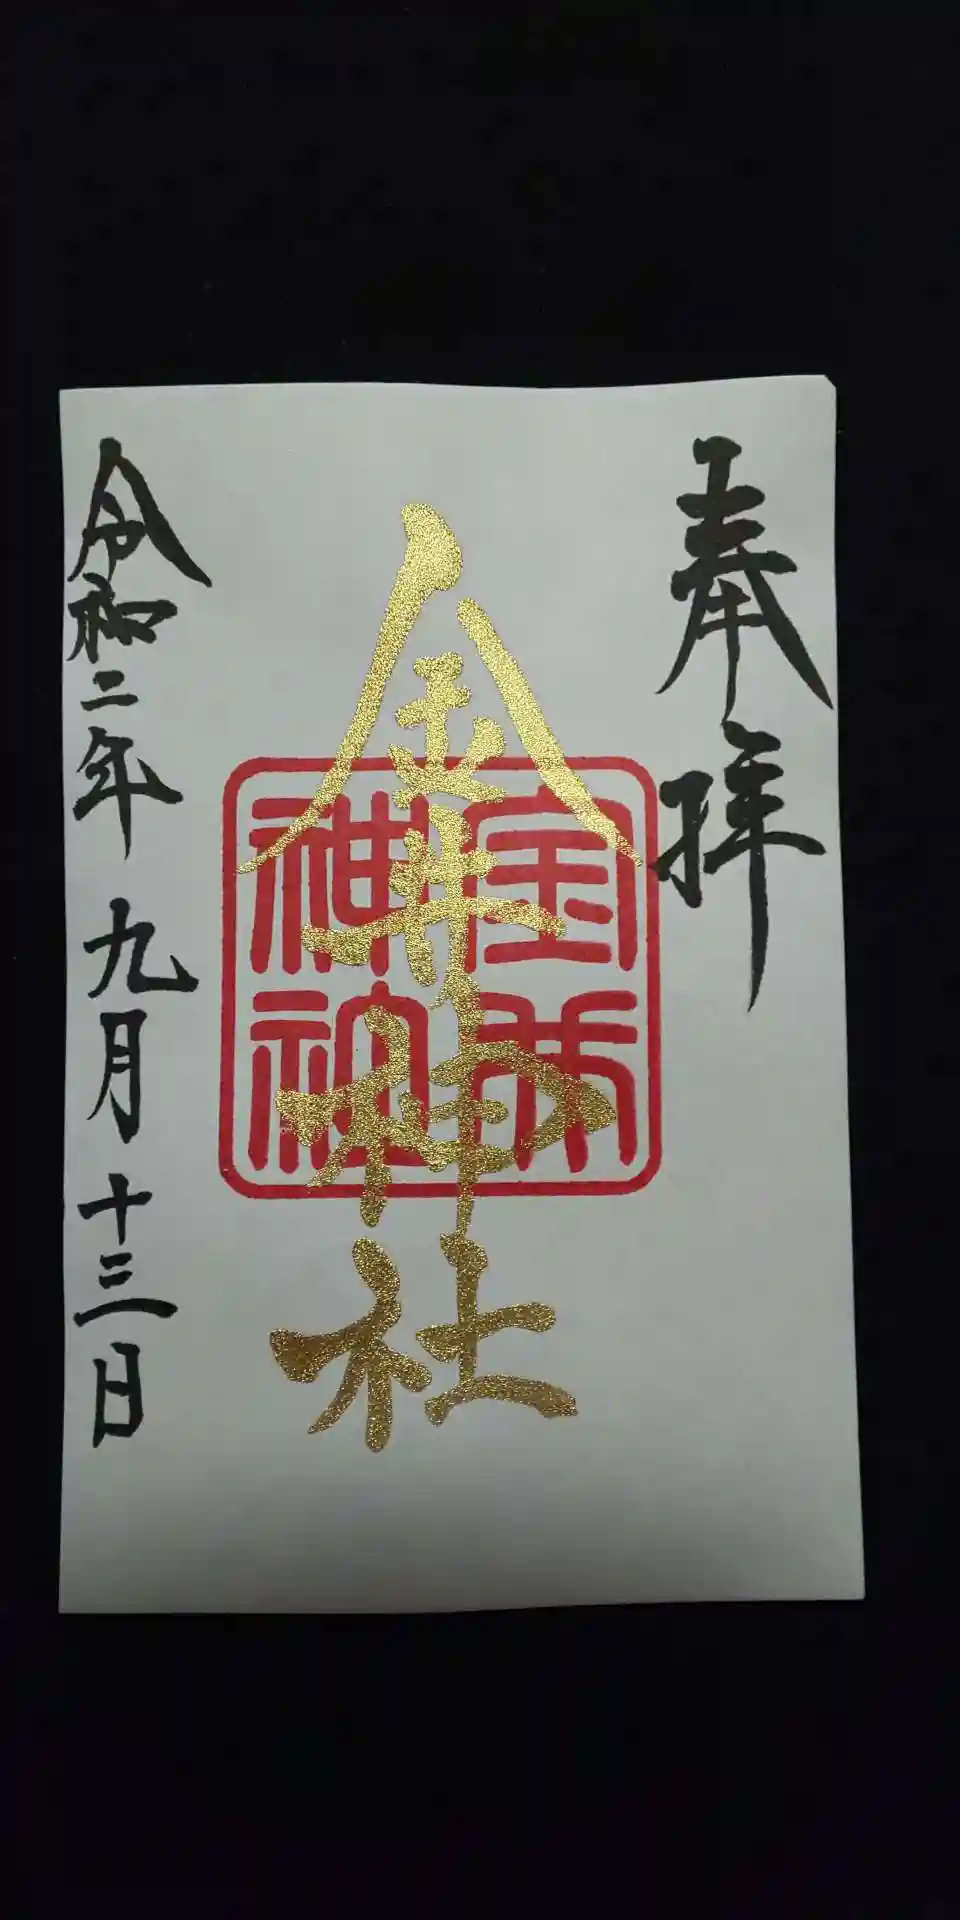 奉拝
金神社
令和二年九月十三日